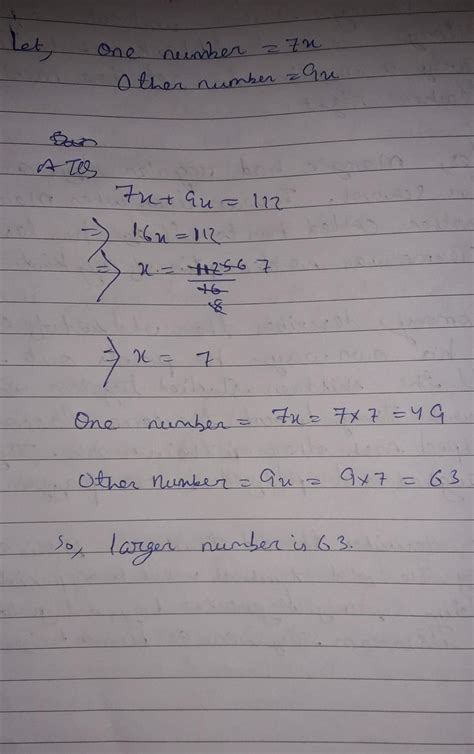 Let, One number = 7x
Other number = 9x
ATQ,
7x + 9x = 112
⇒ 16x = 112
⇒ x = 112 56 7
16
8
⇒ x = 7
One number = 7x = 7×7 = 49
Other number = 9x = 9×7 = 63
So, larger number is 63.